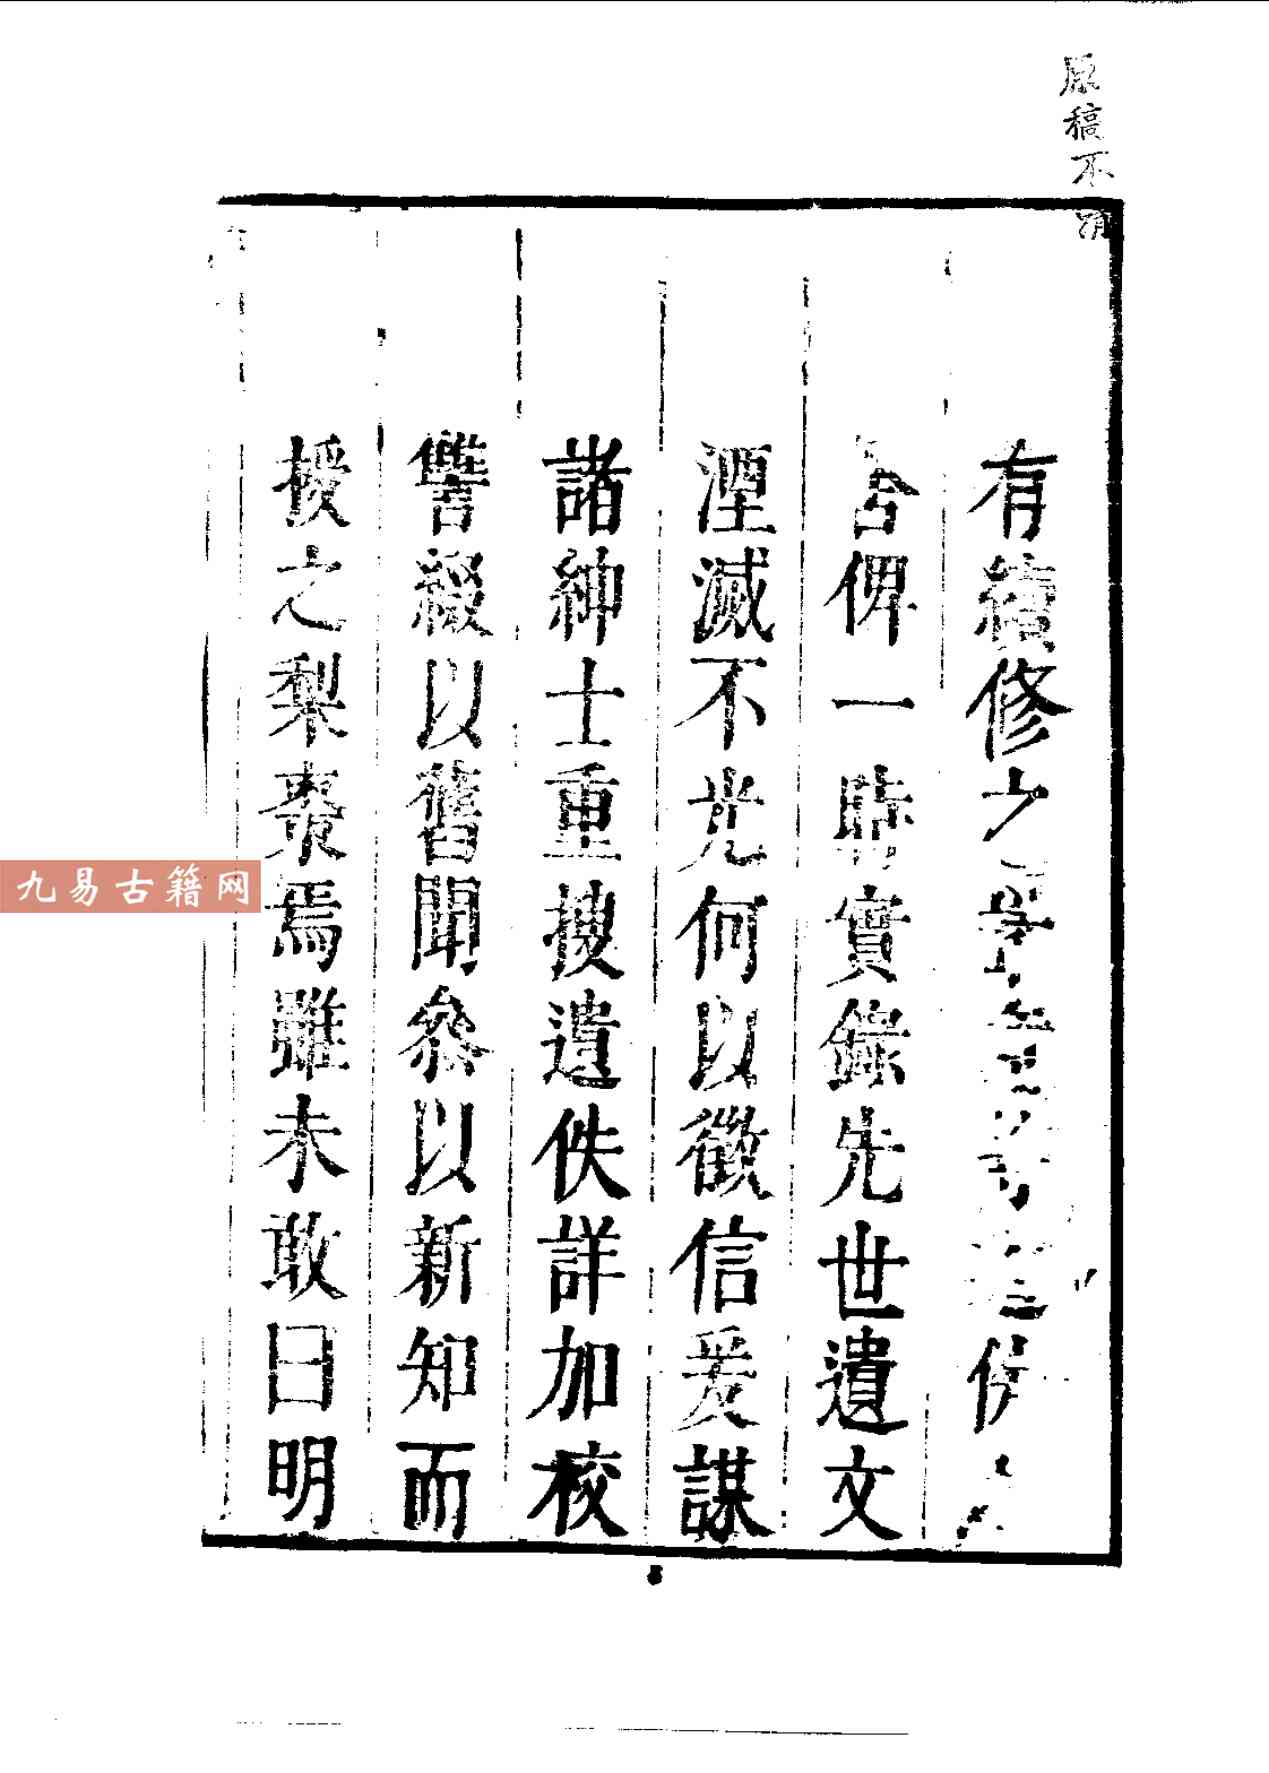 原稿不清
有續修之
含俾一時實錄先世遺文
湮滅不光何以徵信爰謀
諸紳士重搜遺佚詳加校
讐綴以舊聞叅以新知而
授之梨棗焉雖未敢曰明
九易古籍网